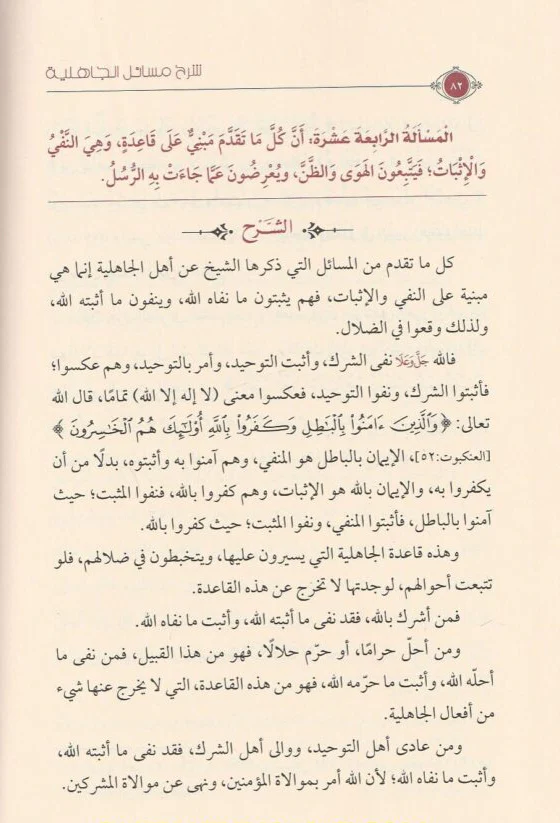 شرح مسائل الجاهلية
٨٢
الْمَسْأَلَةُ الرَّابِعَةَ عَشْرَةَ: أَنَّ كُلَّ مَا تَقَدَّمَ مَبْنِيٌّ عَلَى قَاعِدَةٍ، وَهِيَ النَّفْيُ
وَالْإِثْبَاتُ؛ فَيَتَّبِعُونَ الهَوَى وَالظَّنَّ، ويُعْرِضُونَ عَمَّا جَاءَتْ بِهِ الرُّسُلُ.
الشَّرْح
كل ما تقدم من المسائل التي ذكرها الشيخ عن أهل الجاهلية إنما هي
مبنية على النفي والإثبات، فهم يثبتون ما نفاه الله، وينفون ما أثبته الله،
ولذلك وقعوا في الضلال.
فالله جَلَّ وَعَلَا نفى الشرك، وأثبت التوحيد، وأمر بالتوحيد، وهم عكسوا؛
فأثبتوا الشرك، ونفوا التوحيد، فعكسوا معنى (لا إله إلا الله) تمامًا، قال الله
تعالى: ﴿وَالَّذِينَ ءَامَنُواْ بِالْبَٰطِلِ وَكَفَرُواْ بِاللَّهِ أُوْلَٰٓئِكَ هُمُ الْخَٰسِرُونَ﴾
[العنكبوت:٥٢]، الإيمان بالباطل هو المنفي، وهم آمنوا به وأثبتوه، بدلًا من أن
يكفروا به، والإيمان بالله هو الإثبات، وهم كفروا بالله، فنفوا المثبت؛ حيث
آمنوا بالباطل، فأثبتوا المنفي، ونفوا المثبت؛ حيث كفروا بالله.
وهذه قاعدة الجاهلية التي يسيرون عليها، ويتخبطون في ضلالهم، فلو
تتبعت أحوالهم، لوجدتها لا تخرج عن هذه القاعدة.
فمن أشرك بالله، فقد نفى ما أثبته الله، وأثبت ما نفاه الله.
ومن أحلّ حرامًا، أو حرّم حلالًا، فهو من هذا القبيل، فمن نفى ما
أحلّه الله، وأثبت ما حرّمه الله، فهو من هذه القاعدة، التي لا يخرج عنها شيء
من أفعال الجاهلية.
ومن عادى أهل التوحيد، ووالى أهل الشرك، فقد نفى ما أثبته الله،
وأثبت ما نفاه الله؛ لأن الله أمر بموالاة المؤمنين، ونهى عن موالاة المشركين.